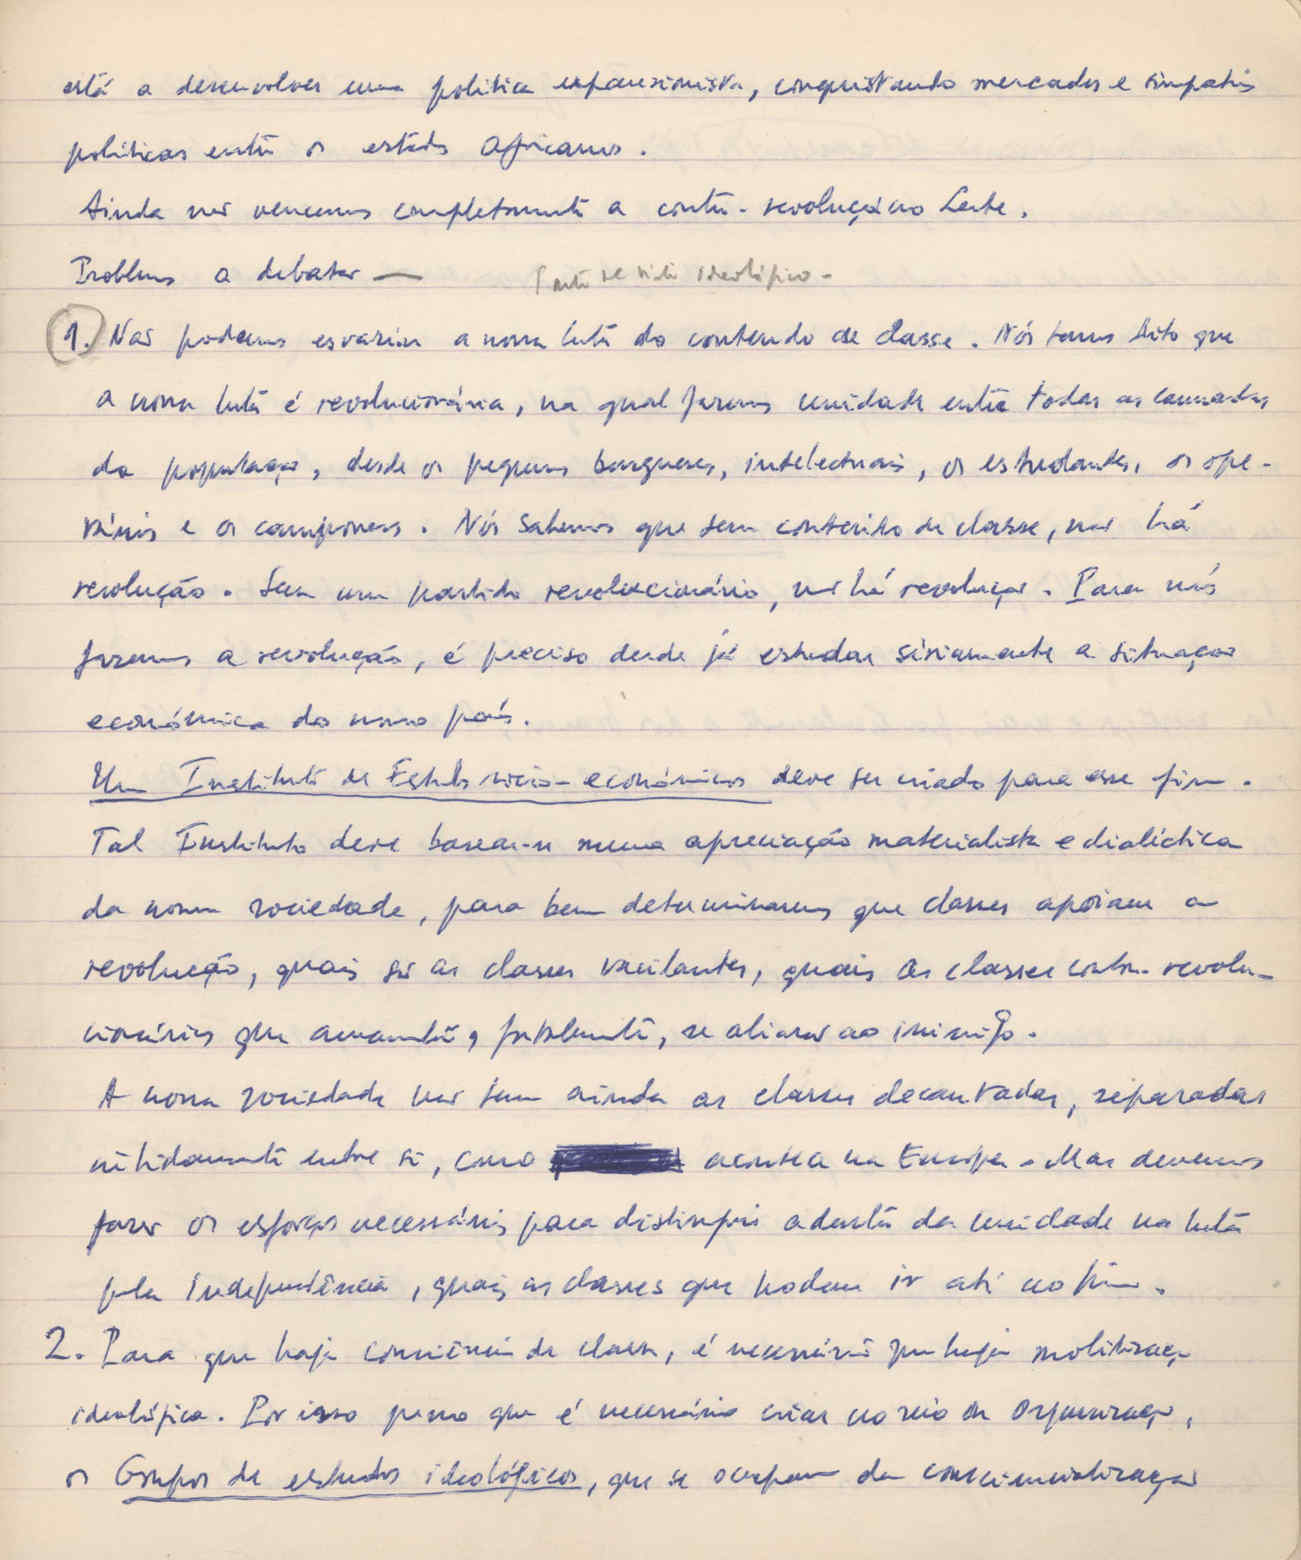 está a desenvolver uma politica expansionista, conquistando mercados e simpatias
politicas entre os estados Africanos.
Ainda não vencemos completamente a contra-revolução no Leste.
Problemas a debater — ideológico -
1. Não podemos esvaziar a nossa luta do conteudo de classe. Nós temos dito que
a nossa luta é revolucionária, na qual fazemos unidade entre todas as camadas
da população, desde os pequenos burgueses, intelectuais, os estudantes, os ope-
rários e os camponeses. Nós sabemos que sem conteúdo de classe, não há
revolução. Sem um partido revolucionário, não há revolução. Para nós
fazermos a revolução, é preciso desde já estudar sèriamente a situação
económica do nosso país.
Um Instituto de Estudos sócio-económicos deve ser criado para esse fim.
Tal Instituto deve basear-se numa apreciação materialista e dialéctica
da nossa sociedade, para bem determinarmos que classes apoiam a
revolução, quais são as classes vacilantes, quais as classes contra-revolu-
cionárias que amanhã, fatalmente, se aliarão ao inimigo.
A nossa sociedade não tem ainda as classes decantadas, separadas
nitidamente entre si, como acontece na Europa. Mas devemos
fazer os esforços necessários para distinguir adentro da unidade na luta
pela Independência, quais as classes que podem ir até ao fim.
2. Para que haja consciência de classe, é necessário que haja mobilização
ideológica. Por isso penso que é necessário criar no seio da Organização,
os Grupos de estudos ideológicos, que se ocupam da consciencialização